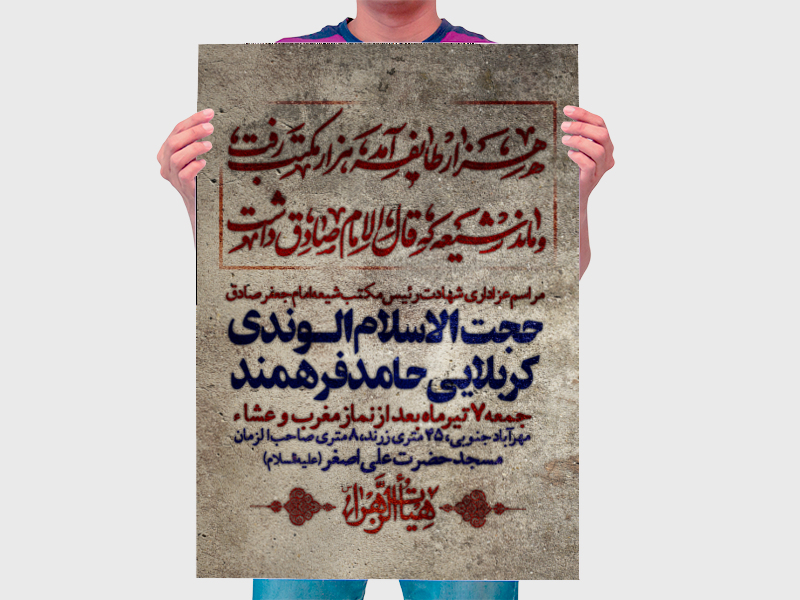 هزار طایفه آمد، هزار مکتب رفت
و ماند شیعه که قال الامام صادق داشت
مراسم عزاداری شهادت رئیس مکتب شیعه امام جعفر صادق
حجت الاسلام الوندی
کربلایی حامد فرهمند
جمعه ۷ تیرماه بعد از نماز مغرب و عشاء
مهرآباد جنوبی، ۴۵ متری زرند، ۸ متری صاحب الزمان
مسجد حضرت علی اصغر (علیه السلام)
هیأت الزهرا